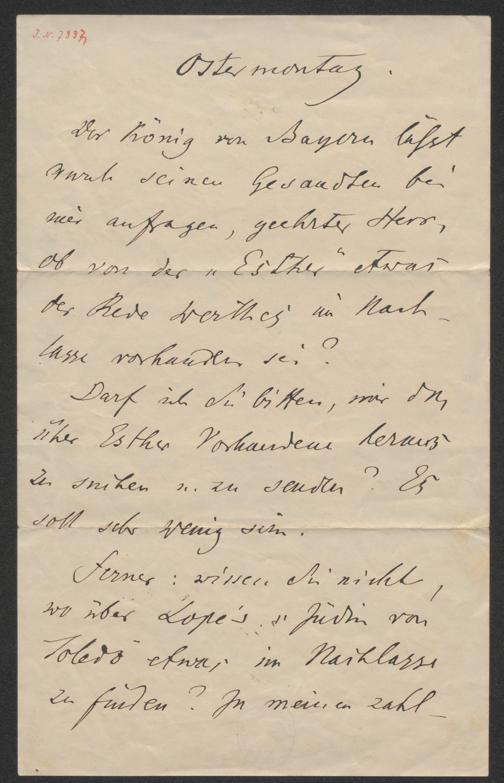 J.N. 7337
Ostermontag.
Der König von Bayern läßt
durch seinen Gesandten bei
mir anfragen, geehrter Herr,
ob von der „Esther“ etwas
der Rede werthes im Nach-
lasse vorhanden sei?
Darf ich Sie bitten, mir das
über Esther Vorhandene heraus
zu suchen u. zu senden? Es
soll sehr wenig sein.
Ferner: wissen Sie nicht,
wo über Lope's „Jüdin von
Toledo“ etwas im Nachlasse
zu finden? In meinen zahl-